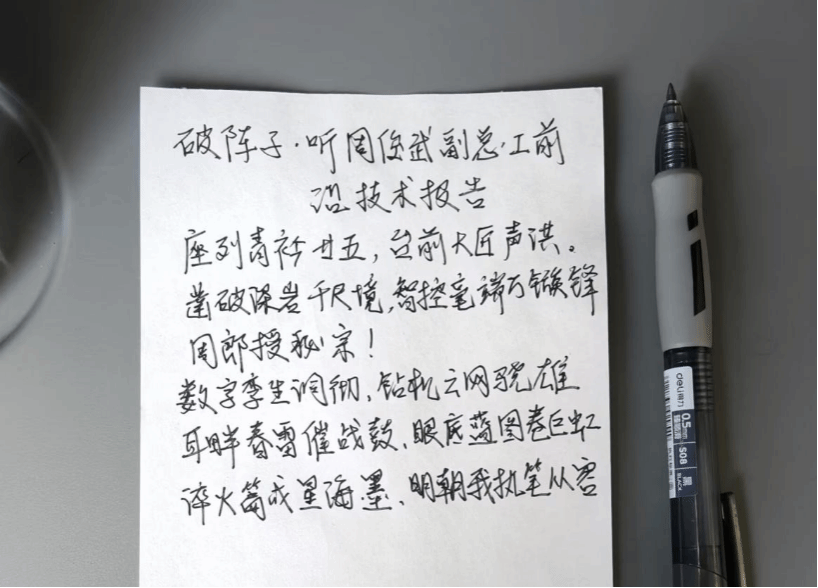 破阵子·听周俊武副总工前
沿技术报告
座列青衿廿五，台前大匠声洪。
凿破深岩千尺境，智控毫端万镞锋
周郎授秘宗！
数字孪生洞彻，钻机云网骁雄
耳畔春雷催战鼓，眼底蓝图卷巨虹
淬火篇成星海墨，明朝我执笔从容
deli得力
0.5mm
S08
黑
BLACK